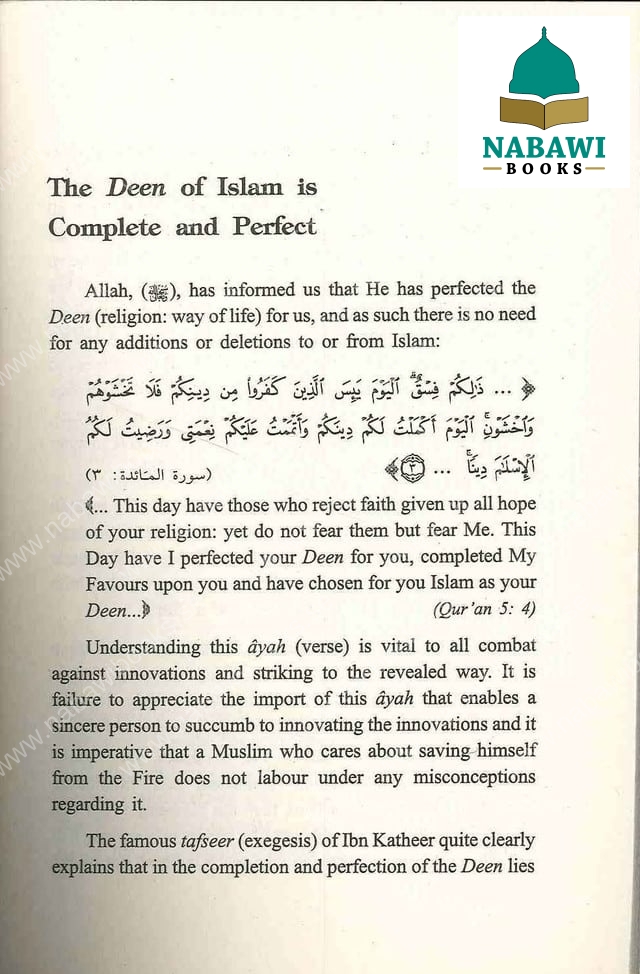 NABAWI
BOOKS
The Deen of Islam is
Complete and Perfect
Allah, (ﷻ), has informed us that He has perfected the
Deen (religion: way of life) for us, and as such there is no need
for any additions or deletions to or from Islam:
﴿ ... ذَٰلِكُمْ فِسْقٌ ۗ ٱلْيَوْمَ يَئِسَ ٱلَّذِينَ كَفَرُوا۟ مِن دِينِكُمْ فَلَا تَخْشَوْهُمْ
وَٱخْشَوْنِ ۚ ٱلْيَوْمَ أَكْمَلْتُ لَكُمْ دِينَكُمْ وَأَتْمَمْتُ عَلَيْكُمْ نِعْمَتِى وَرَضِيتُ لَكُمُ
ٱلْإِسْلَـٰمَ دِينًا ۚ ... ۝٣ ﴾ (سورة المائدة: ٣)
﴿... This day have those who reject faith given up all hope
of your religion: yet do not fear them but fear Me. This
Day have I perfected your Deen for you, completed My
Favours upon you and have chosen for you Islam as your
Deen...﴾ (Qur'an 5: 4)
Understanding this âyah (verse) is vital to all combat
against innovations and striking to the revealed way. It is
failure to appreciate the import of this âyah that enables a
sincere person to succumb to innovating the innovations and it
is imperative that a Muslim who cares about saving himself
from the Fire does not labour under any misconceptions
regarding it.
The famous tafseer (exegesis) of Ibn Katheer quite clearly
explains that in the completion and perfection of the Deen lies